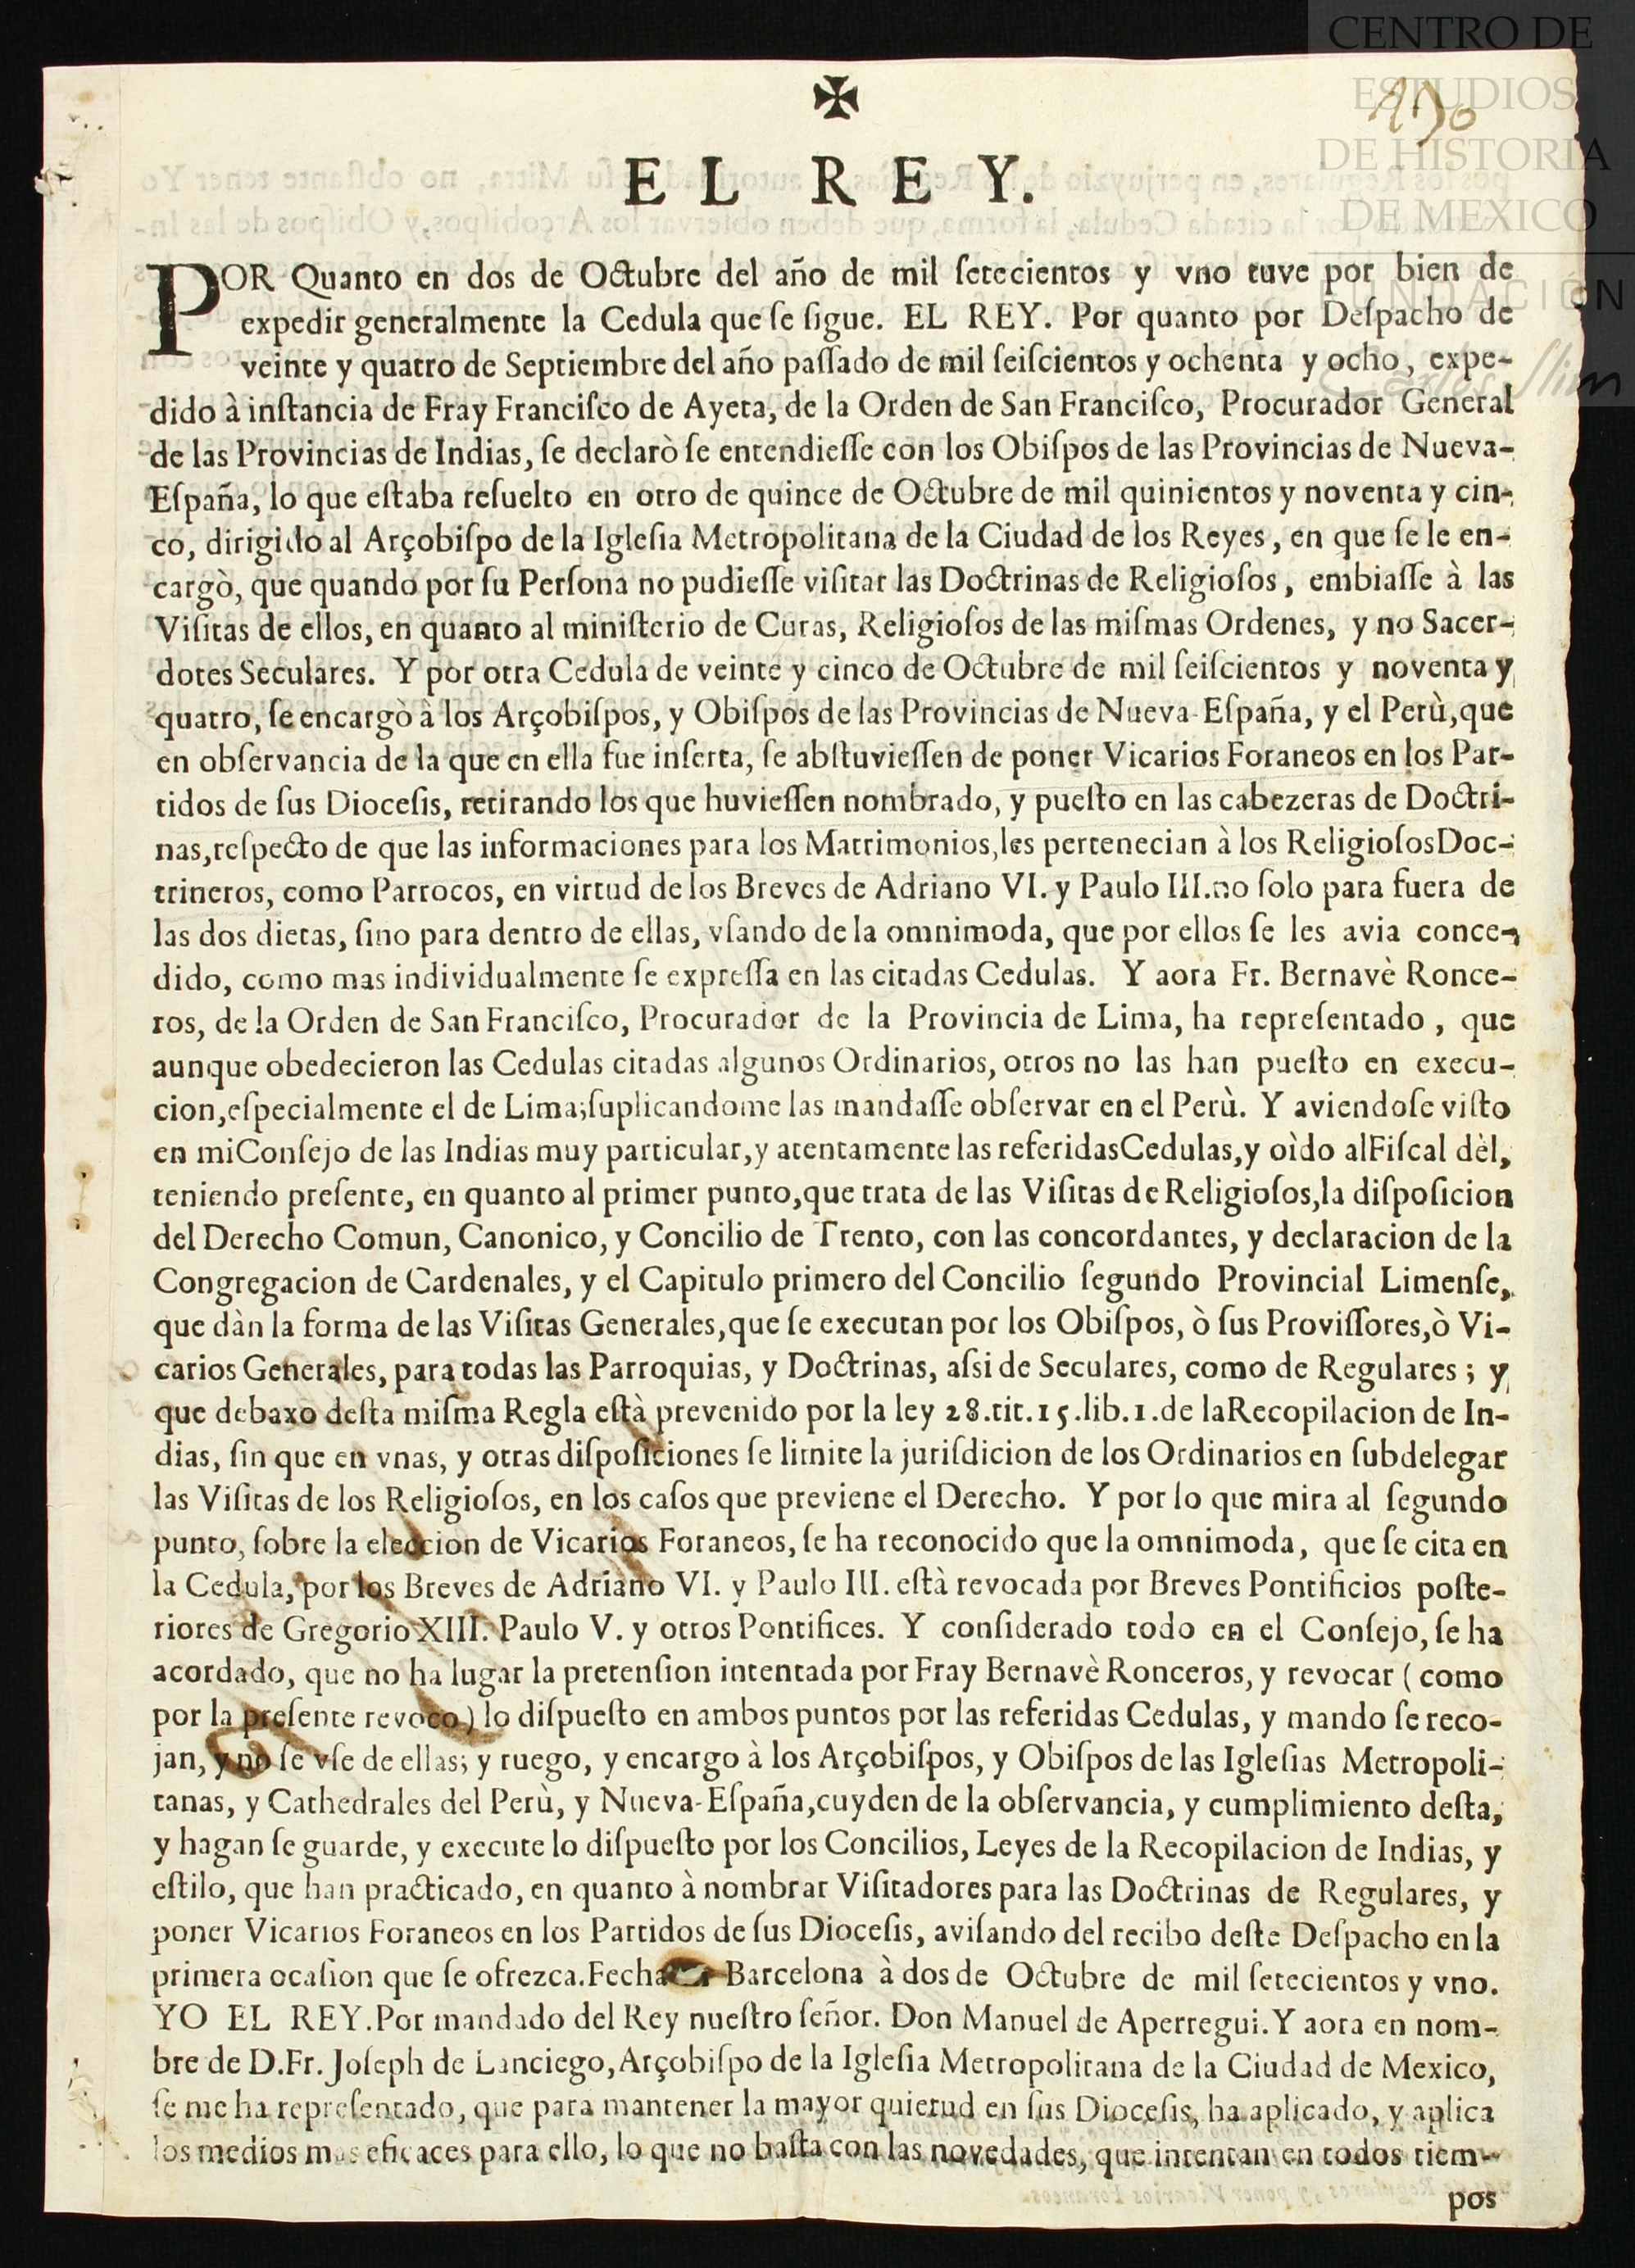 CENTRO DE
ESTUDIOS
DE HISTORIA
DE MEXICO
FUNDACIÓN
Carlos Slim
✠
EL REY.
POR Quanto en dos de Octubre del año de mil ſetecientos y vno tuve por bien de
expedir generalmente la Cedula que ſe ſigue. EL REY. Por quanto por Deſpacho de
veinte y quatro de Septiembre del año paſſado de mil ſeiſcientos y ochenta y ocho, expe-
dido à inſtancia de Fray Franciſco de Ayeta, de la Orden de San Franciſco, Procurador General
de las Provincias de Indias, ſe declarò ſe entendieſſe con los Obiſpos de las Provincias de Nueva-
Eſpaña, lo que eſtaba reſuelto en otro de quince de Octubre de mil quinientos y noventa y cin-
co, dirigido al Arçobiſpo de la Igleſia Metropolitana de la Ciudad de los Reyes, en que ſe le en-
cargò, que quando por ſu Perſona no pudieſſe viſitar las Doctrinas de Religioſos, embiaſſe à las
Viſitas de ellos, en quanto al miniſterio de Curas, Religioſos de las miſmas Ordenes, y no Sacer-
dotes Seculares. Y por otra Cedula de veinte y cinco de Octubre de mil ſeiſcientos y noventa y
quatro, ſe encargò à los Arçobiſpos, y Obiſpos de las Provincias de Nueva-Eſpaña, y el Perù, que
en obſervancia de la que en ella fue inſerta, ſe abſtuvieſſen de poner Vicarios Foraneos en los Par-
tidos de ſus Dioceſis, retirando los que huvieſſen nombrado, y pueſto en las cabezeras de Doctri-
nas, reſpecto de que las informaciones para los Matrimonios, les pertenecian à los Religioſos Doc-
trineros, como Parrocos, en virtud de los Breves de Adriano VI. y Paulo III. no ſolo para fuera de
las dos dietas, ſino para dentro de ellas, vſando de la omnimoda, que por ellos ſe les avia conce-
dido, como mas individualmente ſe expreſſa en las citadas Cedulas. Y aora Fr. Bernavè Ronce-
ros, de la Orden de San Franciſco, Procurador de la Provincia de Lima, ha repreſentado, que
aunque obedecieron las Cedulas citadas algunos Ordinarios, otros no las han pueſto en execu-
cion, eſpecialmente el de Lima; ſuplicandome las mandaſſe obſervar en el Perù. Y aviendoſe viſto
en mi Conſejo de las Indias muy particular, y atentamente las referidas Cedulas, y oìdo al Fiſcal dèl,
teniendo preſente, en quanto al primer punto, que trata de las Viſitas de Religioſos, la diſpoſicion
del Derecho Comun, Canonico, y Concilio de Trento, con las concordantes, y declaracion de la
Congregacion de Cardenales, y el Capitulo primero del Concilio ſegundo Provincial Limenſe,
que dàn la forma de las Viſitas Generales, que ſe executan por los Obiſpos, ò ſus Proviſſores, ò Vi-
carios Generales, para todas las Parroquias, y Doctrinas, aſsi de Seculares, como de Regulares; y
que debaxo deſta miſma Regla eſtà prevenido por la ley 28. tit. 15. lib. 1. de la Recopilacion de In-
dias, ſin que en vnas, y otras diſpoſiciones ſe limite la juriſdicion de los Ordinarios en ſubdelegar
las Viſitas de los Religioſos, en los caſos que previene el Derecho. Y por lo que mira al ſegundo
punto, ſobre la eleccion de Vicarios Foraneos, ſe ha reconocido que la omnimoda, que ſe cita en
la Cedula, por los Breves de Adriano VI. y Paulo III. eſtà revocada por Breves Pontificios poſte-
riores de Gregorio XIII. Paulo V. y otros Pontifices. Y conſiderado todo en el Conſejo, ſe ha
acordado, que no ha lugar la pretenſion intentada por Fray Bernavè Ronceros, y revocar (como
por la preſente revoco) lo diſpueſto en ambos puntos por las referidas Cedulas, y mando ſe reco-
jan, y no ſe vſe de ellas; y ruego, y encargo à los Arçobiſpos, y Obiſpos de las Igleſias Metropoli-
tanas, y Cathedrales del Perù, y Nueva-Eſpaña, cuyden de la obſervancia, y cumplimiento deſta,
y hagan ſe guarde, y execute lo diſpueſto por los Concilios, Leyes de la Recopilacion de Indias, y
eſtilo, que han practicado, en quanto à nombrar Viſitadores para las Doctrinas de Regulares, y
poner Vicarios Foraneos en los Partidos de ſus Dioceſis, aviſando del recibo deſte Deſpacho en la
primera ocaſion que ſe ofrezca. Fecha Barcelona à dos de Octubre de mil ſetecientos y vno.
YO EL REY. Por mandado del Rey nueſtro ſeñor. Don Manuel de Aperregui. Y aora en nom-
bre de D. Fr. Joſeph de Lanciego, Arçobiſpo de la Igleſia Metropolitana de la Ciudad de Mexico,
ſe me ha repreſentado, que para mantener la mayor quietud en ſus Dioceſis, ha aplicado, y aplica
los medios mas eficaces para ello, lo que no baſta con las novedades, que intentan en todos tiem-
pos